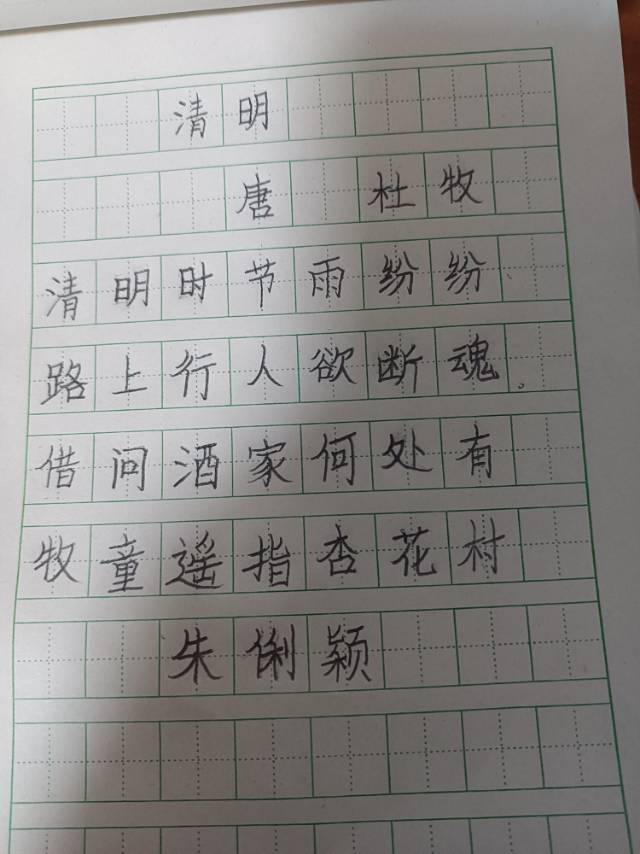 清明
唐 杜牧
清明时节雨纷纷
路上行人欲断魂。
借问酒家何处有
牧童遥指杏花村
朱俐颖